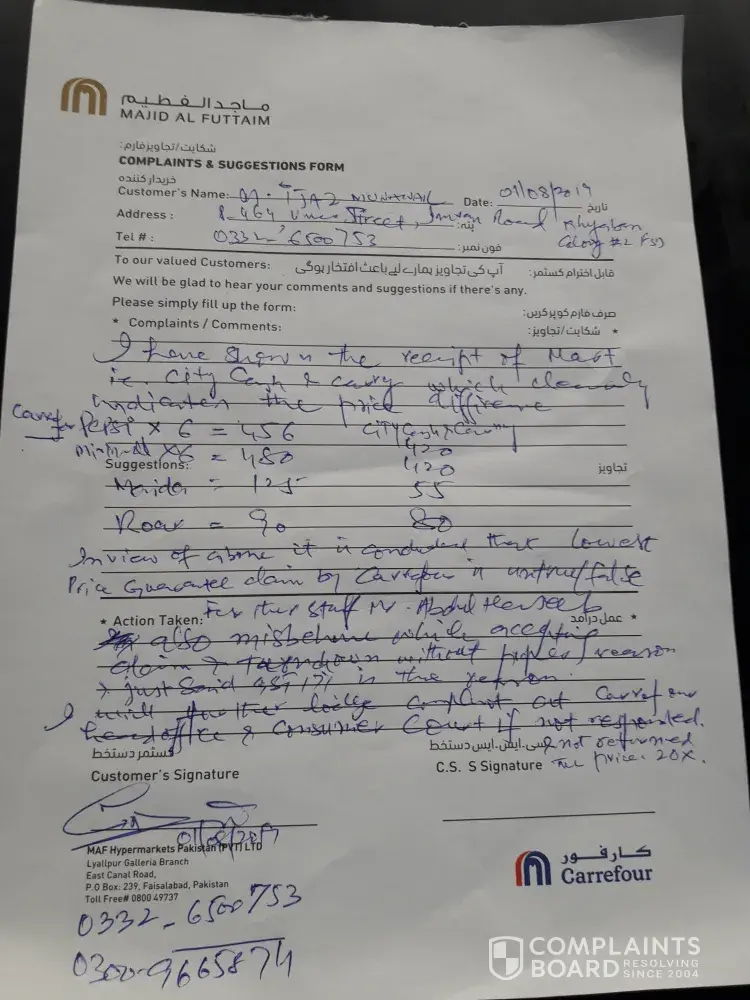 ماجد الفطيم
MAJID AL FUTTAIM
شکایت/تجاویز فارم:
COMPLAINTS & SUGGESTIONS FORM
خریدار کنندہ
Customer's Name: M. IJAZ MUNAWAR Date: 01/08/2019 تاریخ
Address : P-464 Umer Street, Imran Road Khyaban پتہ:
Colony #2 FSD
Tel # : 0332-6500753 فون نمبر:
To our valued Customers: آپ کی تجاویز ہمارے لیے باعث افتخار ہوگی قابل احترام کسٹمر:
We will be glad to hear your comments and suggestions if there's any.
Please simply fill up the form: صرف فارم کو پر کریں:
* Complaints / Comments: شکایت/تجاویز: *
I have shown the receipt of Mart
i.e. City Cash & carry which clearly
indicates the price difference
Carrefour Pepsi x 6 = 456 City Cash & Carry 420
Minral x6 = 480 420
Suggestions: تجاویز
Maida = 125 55
Roar = 90 80
In view of above it is concluded that lowest
Price Guarantee claim by Carrefour is untrue/false
* Action Taken: Further staff Mr. Abdul Haseeb عمل درآمد *
also misbehave while accepting
claim & turndown without proper reason
& just said GST 17% is the reason.
I will further lodge complaint at Carrefour
headoffice & Consumer Court if not responded.
& not returned
the price 20x.
کسٹمر دستخط سی.ایس.ایس دستخط
Customer's Signature C.S. S Signature
01/08/2019
MAF Hypermarkets Pakistan (PVT) LTD
Lyallpur Galleria Branch
East Canal Road,
P.O Box: 239, Faisalabad, Pakistan
Toll Free# 0800 49737
0332-6500753
0300-9665874
كارفور
Carrefour
COMPLAINTS
BOARD RESOLVING
SINCE 2004